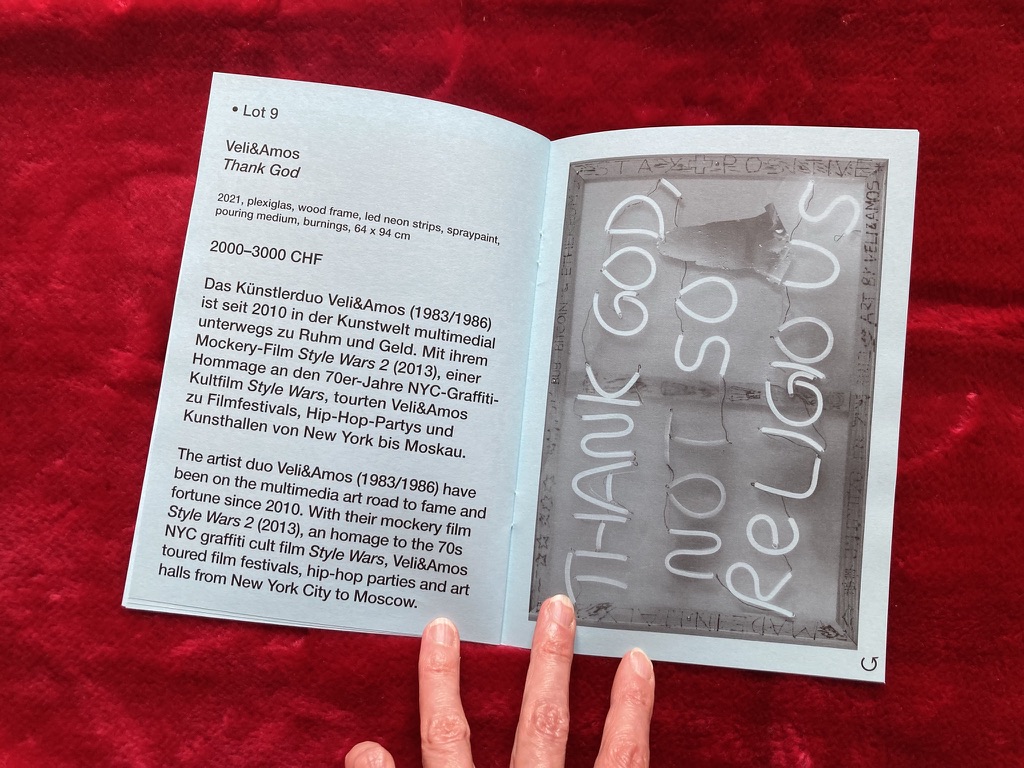 • Lot 9
Veli&Amos
Thank God
2021, plexiglas, wood frame, led neon strips, spraypaint,
pouring medium, burnings, 64 x 94 cm
2000–3000 CHF
Das Künstlerduo Veli&Amos (1983/1986)
ist seit 2010 in der Kunstwelt multimedial
unterwegs zu Ruhm und Geld. Mit ihrem
Mockery-Film Style Wars 2 (2013), einer
Hommage an den 70er-Jahre NYC-Graffiti-
Kultfilm Style Wars, tourten Veli&Amos
zu Filmfestivals, Hip-Hop-Partys und
Kunsthallen von New York bis Moskau.
The artist duo Veli&Amos (1983/1986) have
been on the multimedia art road to fame and
fortune since 2010. With their mockery film
Style Wars 2 (2013), an homage to the 70s
NYC graffiti cult film Style Wars, Veli&Amos
toured film festivals, hip-hop parties and art
halls from New York City to Moscow.
THANK GOD,
NOT SO
ReLIGIOUS
ART BY VELI&AMOS
MADE IN
BUY BITCOIN &